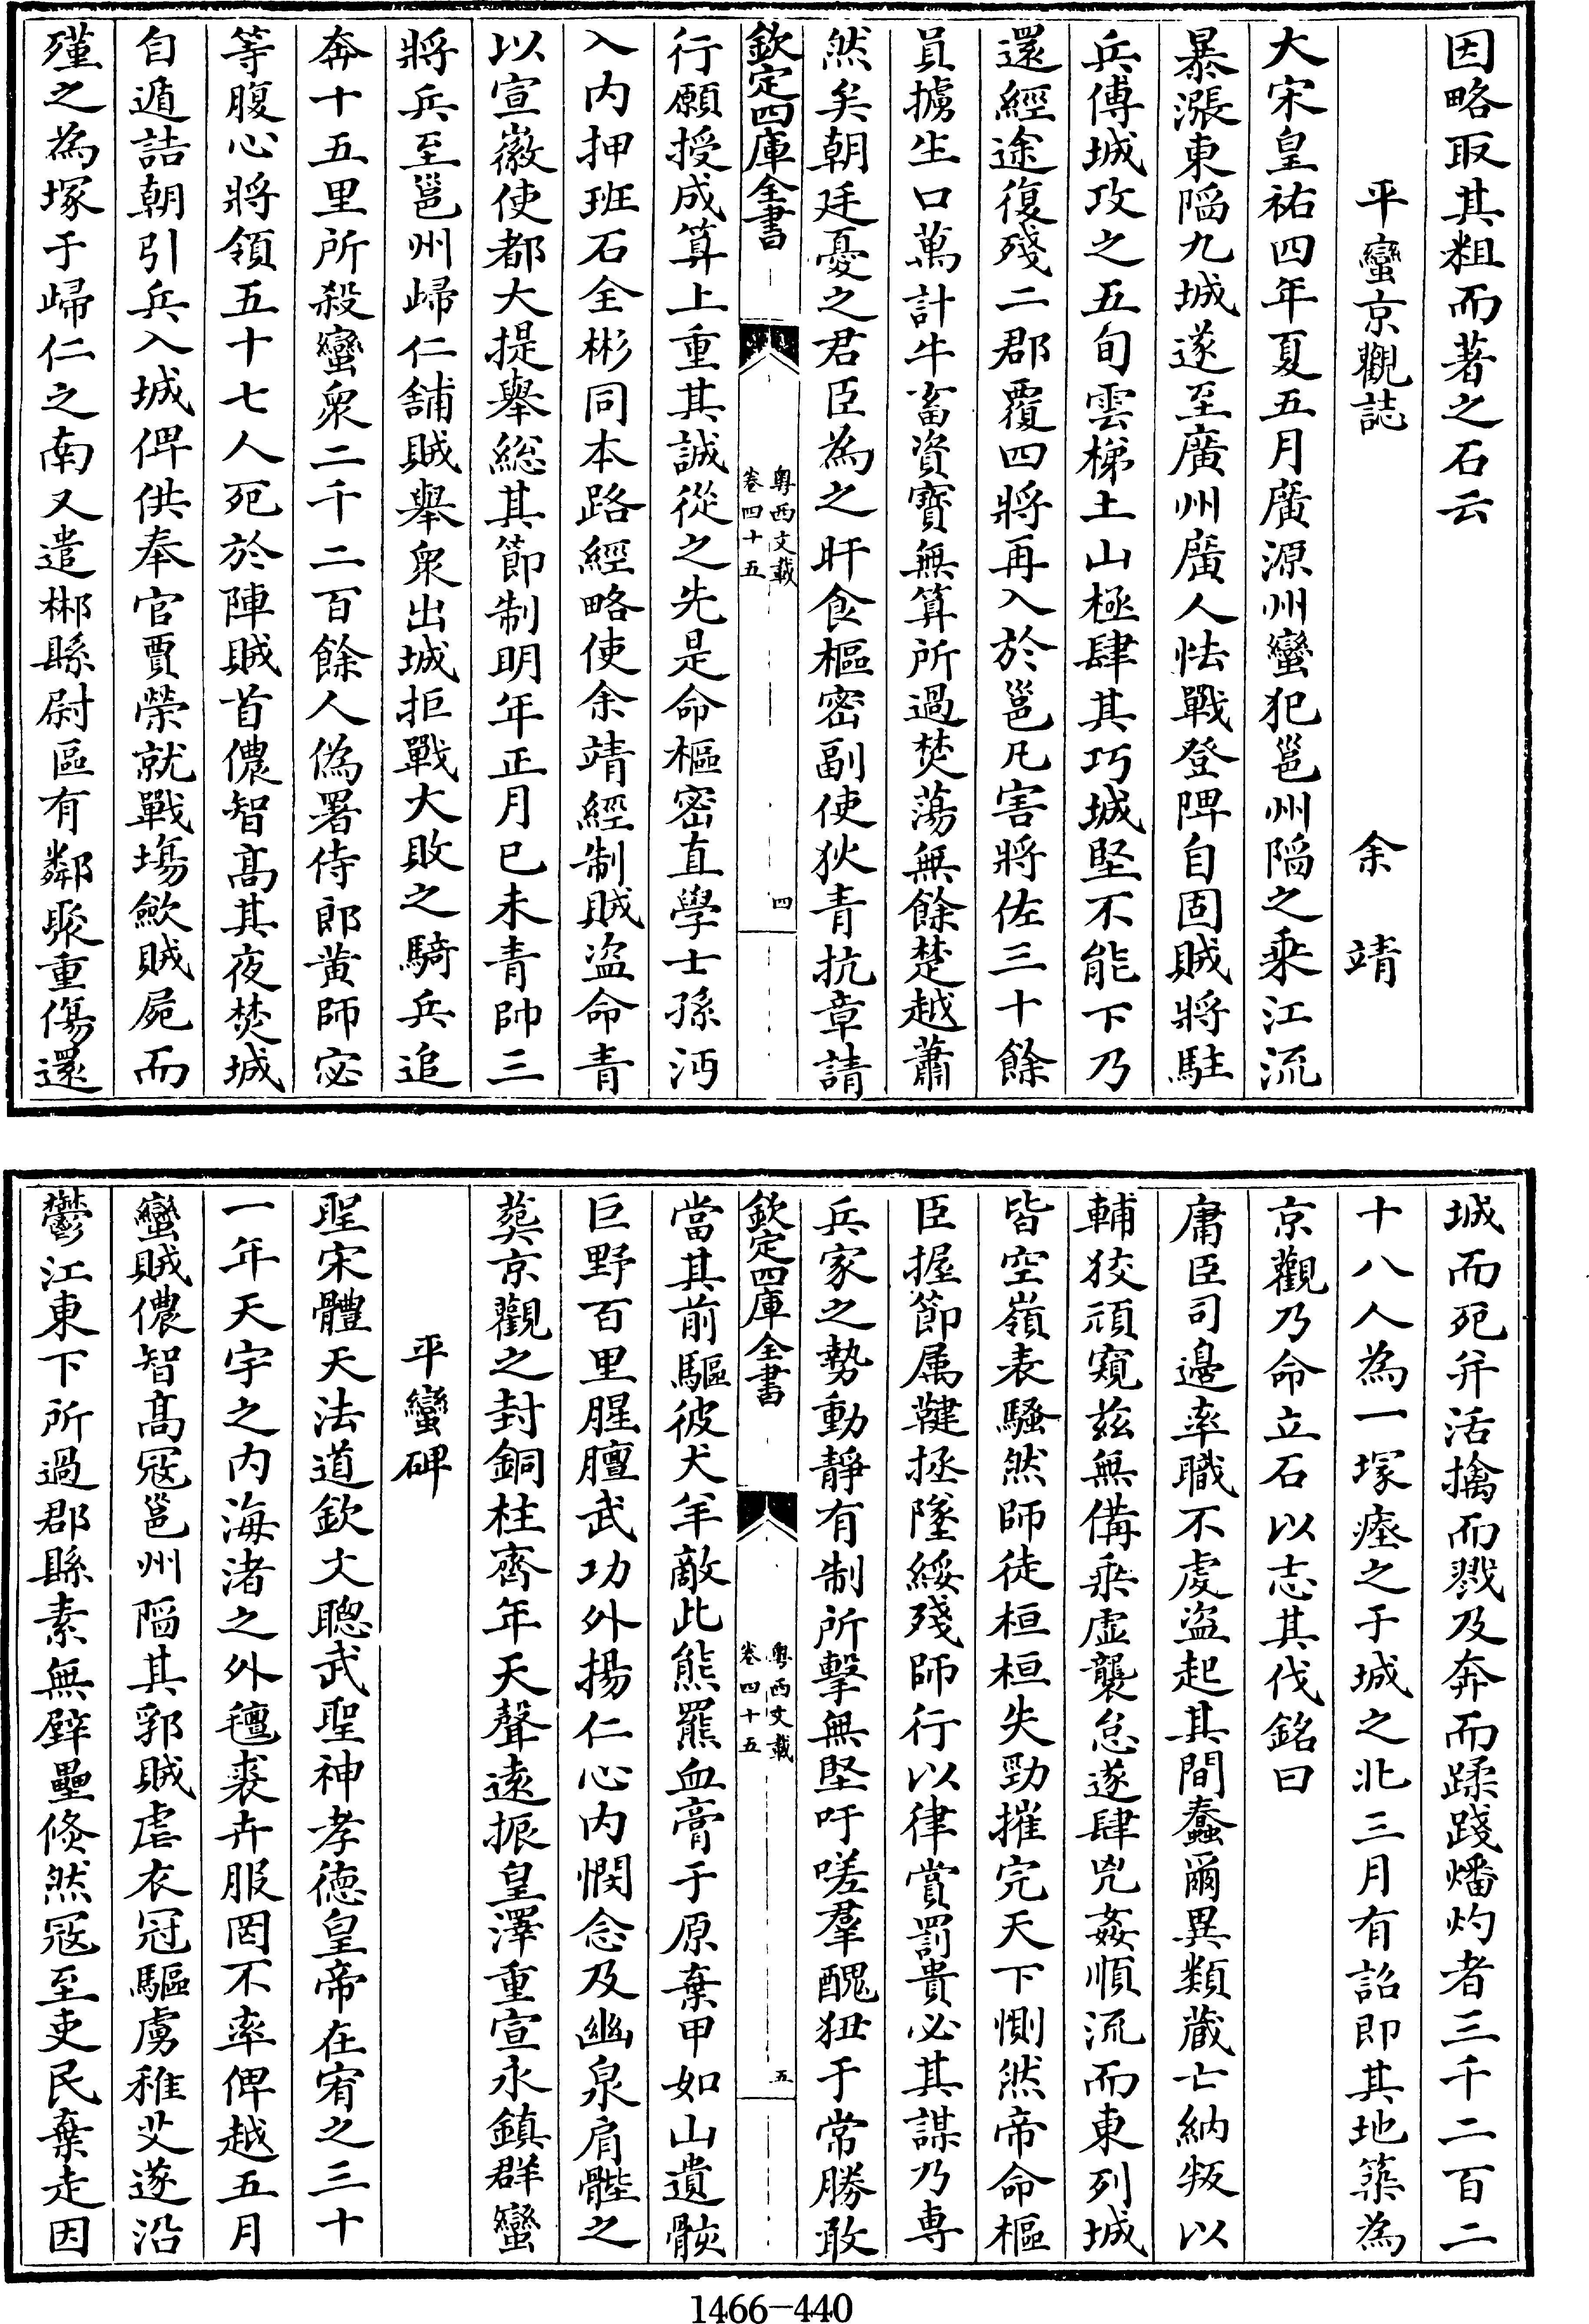 因略取其粗而著之石云
平蠻京觀誌 余靖
大宋皇祐四年夏五月廣源州蠻犯邕州陷之乘江流
暴漲東陷九城遂至廣州廣人怯戰登陴自固賊將駐
兵傅城攻之五旬雲梯土山極肆其巧城堅不能下乃
還經途復殘二郡覆四將再入於邕凡害將佐三十餘
員擄生口萬計牛畜資寳無算所過焚蕩無餘楚越蕭
然矣朝廷憂之君臣為之旰食樞密副使狄青抗章請
欽定四庫全書 粵西文載 卷四十五 四
行願授成算上重其誠從之先是命樞密直學士孫沔
入内押班石全彬同本路經略使余靖經制賊盜命青
以宣徽使都大提舉總其節制明年正月已未青帥三
將兵至邕州歸仁舖賊舉衆出城拒戰大敗之騎兵追
奔十五里所殺蠻衆二千二百餘人偽署侍郎黄師宓
等腹心將領五十七人死於陣賊首儂智髙其夜焚城
自遁詰朝引兵入城俾供奉官賈榮就戰塲斂賊屍而
殣之為塚于歸仁之南又遣郴縣尉區有鄰聚重傷還
城而死并活擒而戮及奔而蹂踐燔灼者三千二百二
十八人為一塚瘞之于城之北三月有詔即其地築為
京觀乃命立石以志其伐銘曰
庸臣司邉率職不䖍盜起其間蠢爾異類蔵亡納叛以
輔狡頑窺兹無備乘虚襲怠遂肆兇姦順流而東列城
皆空嶺表騷然師徒桓桓失勁摧完天下惻然帝命樞
臣握節属鞬拯墜綏殘師行以律賞罰貴必其謀乃専
兵家之勢動靜有制所擊無堅吁嗟羣醜狃于常勝敢
欽定四庫全書 粵西文載 卷四十五 五
當其前驅彼犬羊敵此熊羆血膏于原棄甲如山遺骸
巨野百里腥膻武功外揚仁心内憫念及幽泉肩髀之
葬京觀之封銅柱齊年天聲逺振皇澤重宣永鎮群蠻
平蠻碑
聖宋體天法道欽文聰武聖神孝徳皇帝在宥之三十
一年天宇之内海渚之外氊裘卉服罔不率俾越五月
蠻賊儂智髙冦邕州陷其郛賊虐衣冠驅虜稚艾遂沿
鬱江東下所過郡縣素無壁壘倐然冦至吏民棄走因
1466-440